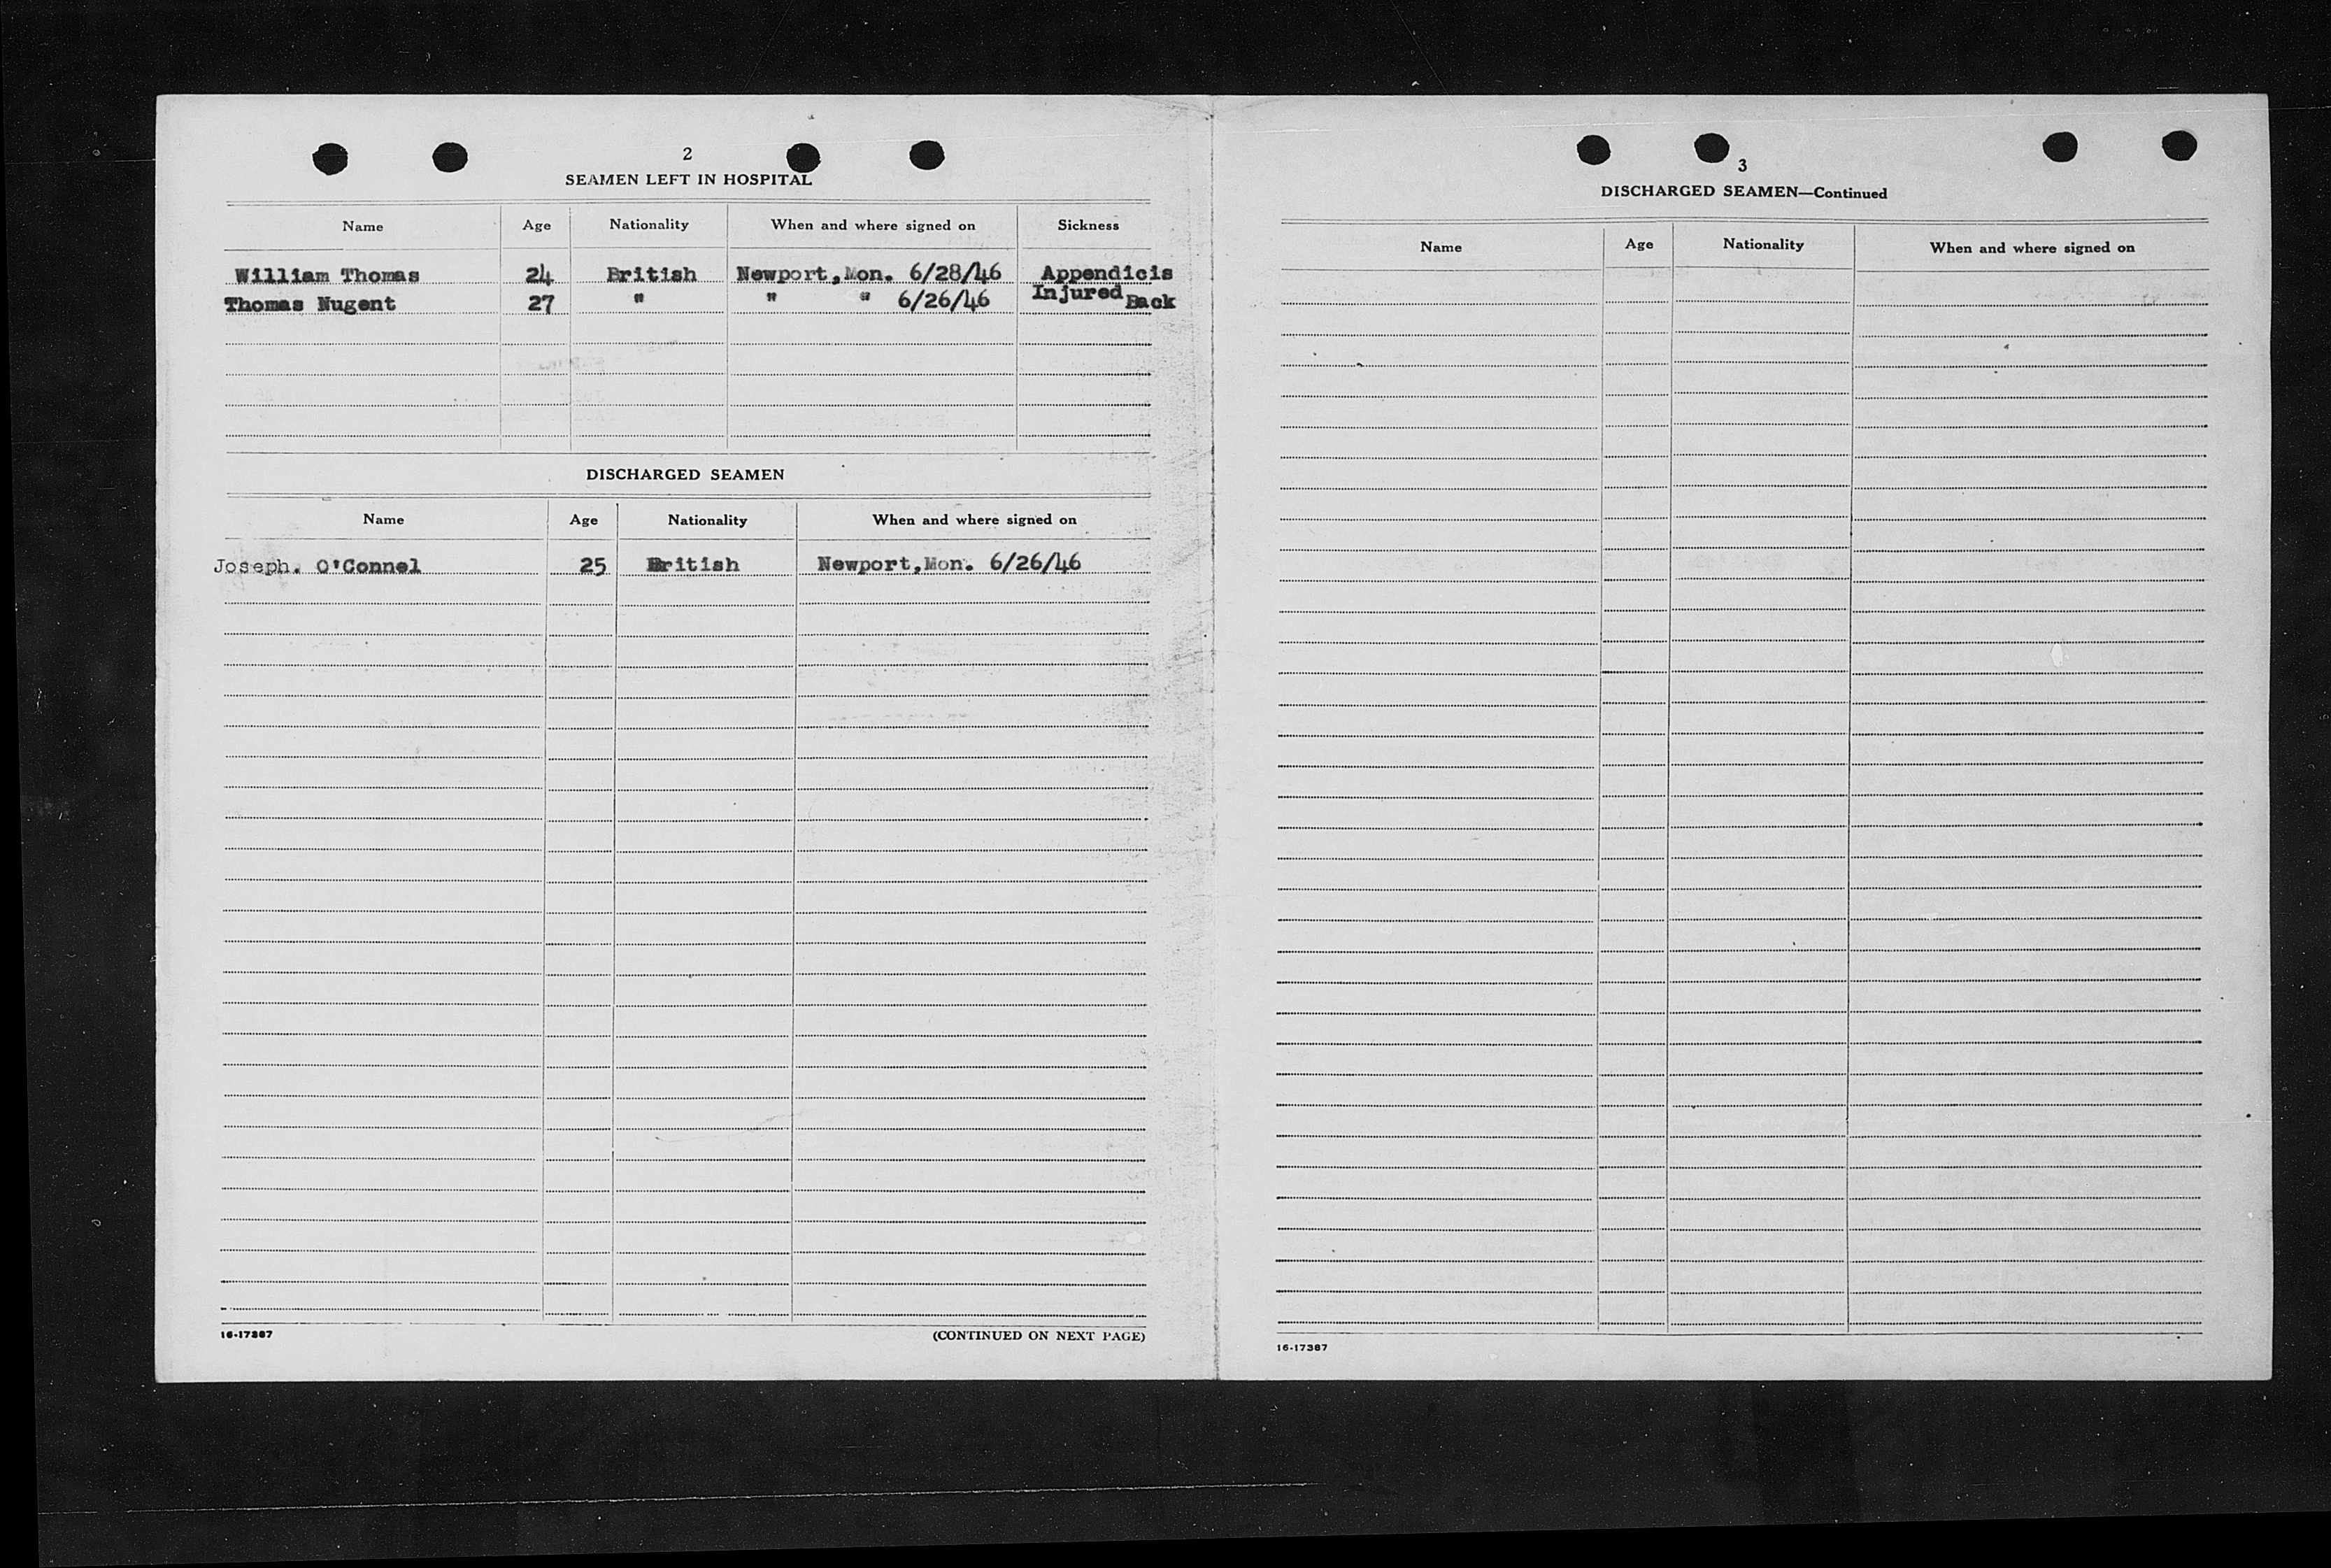 2
SEAMEN LEFT IN HOSPITAL
Name Age Nationality When and where signed on Sickness
William Thomas 24 British Newport,Mon. 6/28/46 Appendicis
Thomas Nugent 27 " " " 6/26/46 Injured Back
DISCHARGED SEAMEN
Name Age Nationality When and where signed on
Joseph. O'Connel 25 British Newport,Mon. 6/26/46
16-17387 (CONTINUED ON NEXT PAGE)
3
DISCHARGED SEAMEN—Continued
Name Age Nationality When and where signed on
16-17387